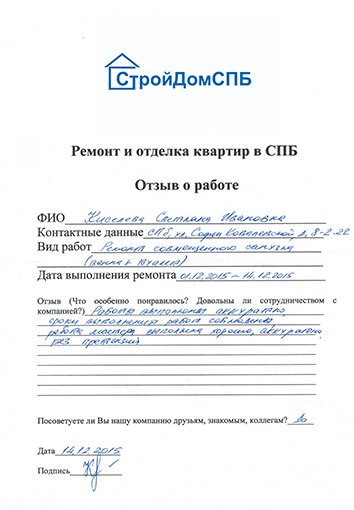 СтройДомСПБ
Ремонт и отделка квартир в СПБ
Отзыв о работе
ФИО Киселева Светлана Ивановна
Контактные данные СПб, ул. Софьи Ковалевской, д, 8-2-22
Вид работ Ремонт совмещенного санузла
(ванна + туалет)
Дата выполнения ремонта 01.12.2015 – 14.12.2015
Отзыв (Что особенно понравилось? Довольны ли сотрудничеством с
компанией?) Работы выполнены аккуратно,
сроки выполнения работ соблюдены
работа мастера выполнена хорошо, аккуратно,
без претензий
Посоветуете ли Вы нашу компанию друзьям, знакомым, коллегам? Да
Дата 14.12.2015
Подпись